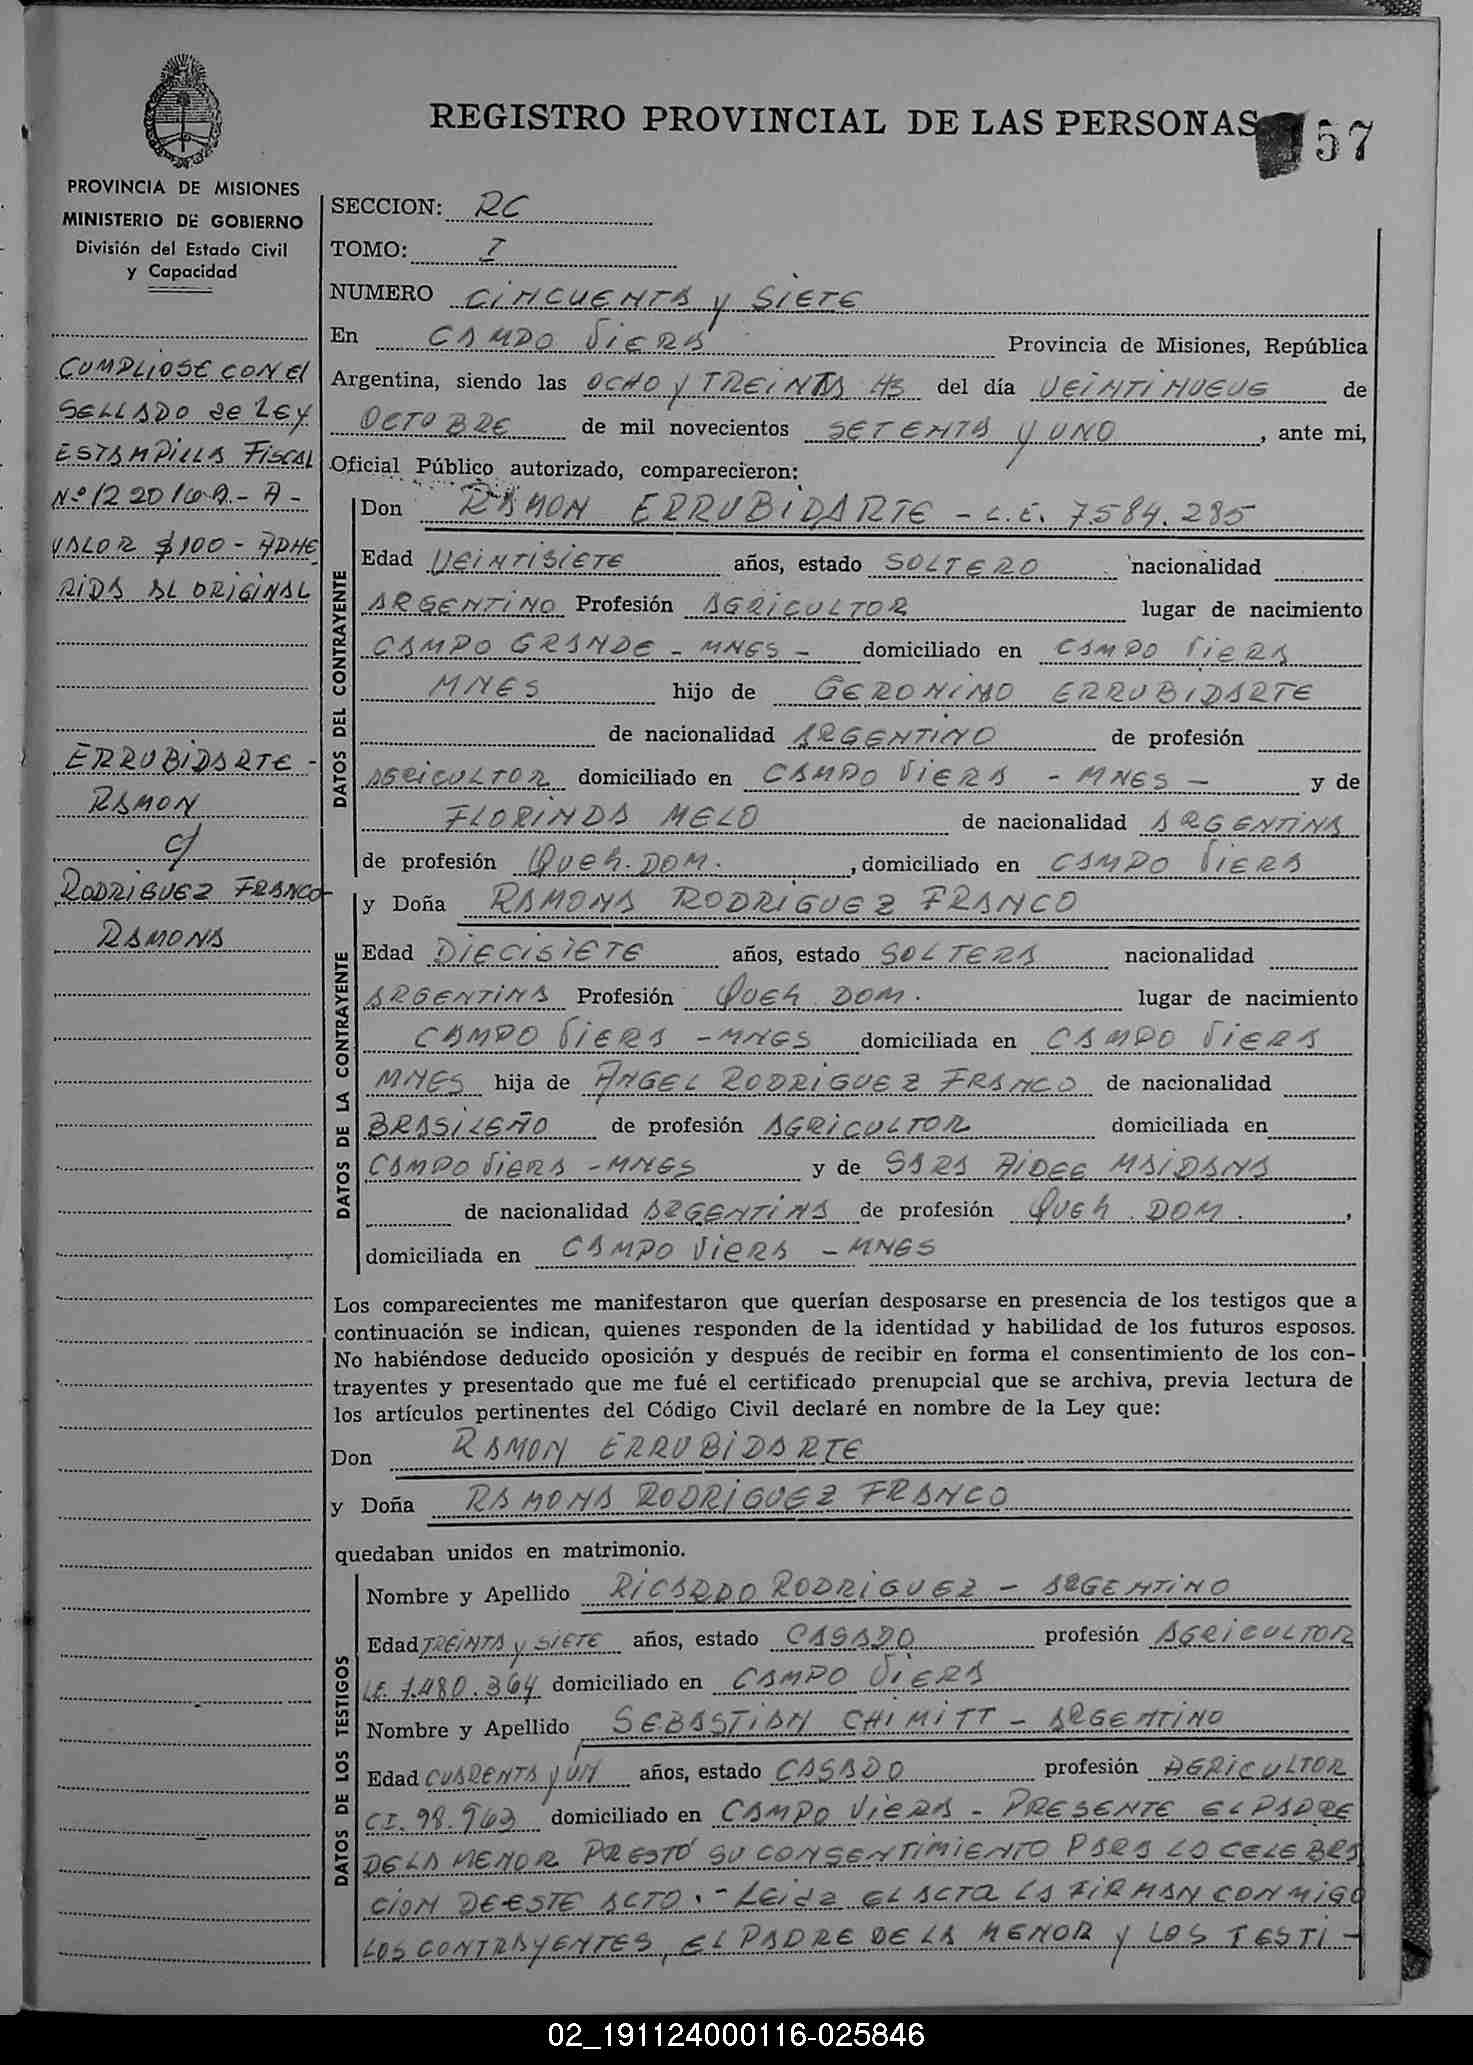 REGISTRO PROVINCIAL DE LAS PERSONAS
57
PROVINCIA DE MISIONES
MINISTERIO DE GOBIERNO
División del Estado Civil
y Capacidad
CUMPLIOSE CON El
SELLADO de LEY
ESTAMPILLA FISCAL
VALOR $ 100 - ADHE
RIDA AL ORIGINAL
ERRUBIDARTE -
RAMON
c/
RODRIGUEZ FRANCO
RAMONA
SECCION: RC
TOMO: I
NUMERO CINCUENTA y SIETE
En CAMPO VIERA Provincia de Misiones, República
Argentina, siendo las OCHO y TREINTA HS del día VEINTINUEVE de
OCTOBRE de mil novecientos SETENTA y UNO, ante mi,
Oficial Público autorizado, comparecieron:
DATOS DEL CONTRAYENTE
Don RAMON ERRUBIDARTE - L.E. 7.584.285
Edad VEINTISIETE años, estado SOLTERO nacionalidad
ARGENTINO Profesión AGRICULTOR lugar de nacimiento
CAMPO GRANDE - MNES - domiciliado en CAMPO VIERA
MNES hijo de GERONIMO ERRUBIDARTE
de nacionalidad ARGENTINO de profesión
AGRICULTOR domiciliado en CAMPO VIERA - MNES - y de
FLORINDA MELO de nacionalidad ARGENTINA
de profesión QUEH. DOM., domiciliado en CAMPO VIERA
DATOS DE LA CONTRAYENTE
y Doña RAMONA RODRIGUEZ FRANCO
Edad DIECISIETE años, estado SOLTERA nacionalidad
ARGENTINA Profesión QUEH. DOM. lugar de nacimiento
CAMPO VIERA - MNES domiciliada en CAMPO VIERA
MNES hija de ANGEL RODRIGUEZ FRANCO de nacionalidad
BRASILEÑO de profesión AGRICULTOR domiciliada en
CAMPO VIERA - MNES y de SARA AIDEE MAIDANA
de nacionalidad ARGENTINA de profesión QUEH. DOM.,
domiciliada en CAMPO VIERA - MNES
Los comparecientes me manifestaron que querían desposarse en presencia de los testigos que a
continuación se indican, quienes responden de la identidad y habilidad de los futuros esposos.
No habiéndose deducido oposición y después de recibir en forma el consentimiento de los con-
trayentes y presentado que me fué el certificado prenupcial que se archiva, previa lectura de
los artículos pertinentes del Código Civil declaré en nombre de la Ley que:
Don RAMON ERRUBIDARTE
y Doña RAMONA RODRIGUEZ FRANCO
quedaban unidos en matrimonio.
DATOS DE LOS TESTIGOS
Nombre y Apellido RICARDO RODRIGUEZ - ARGENTINO
Edad TREINTA y SIETE años, estado CASADO profesión AGRICULTOR
LE. 7.480.364 domiciliado en CAMPO VIERA
Nombre y Apellido SEBASTIAN CHIMITT - ARGENTINO
Edad CUARENTA y UN años, estado CASADO profesión AGRICULTOR
CI. 98.963 domiciliado en CAMPO VIERA - PRESENTE EL PADRE
DE LA MENOR PRESTÓ SU CONSENTIMIENTO PARA LA CELEBRA
CION DE ESTE ACTO.- Leida EL ACTA LA FIRMAN CONMIGO
LOS CONTRAYENTES, EL PADRE DE LA MENOR y LOS TESTI-
02_191124000116-025846